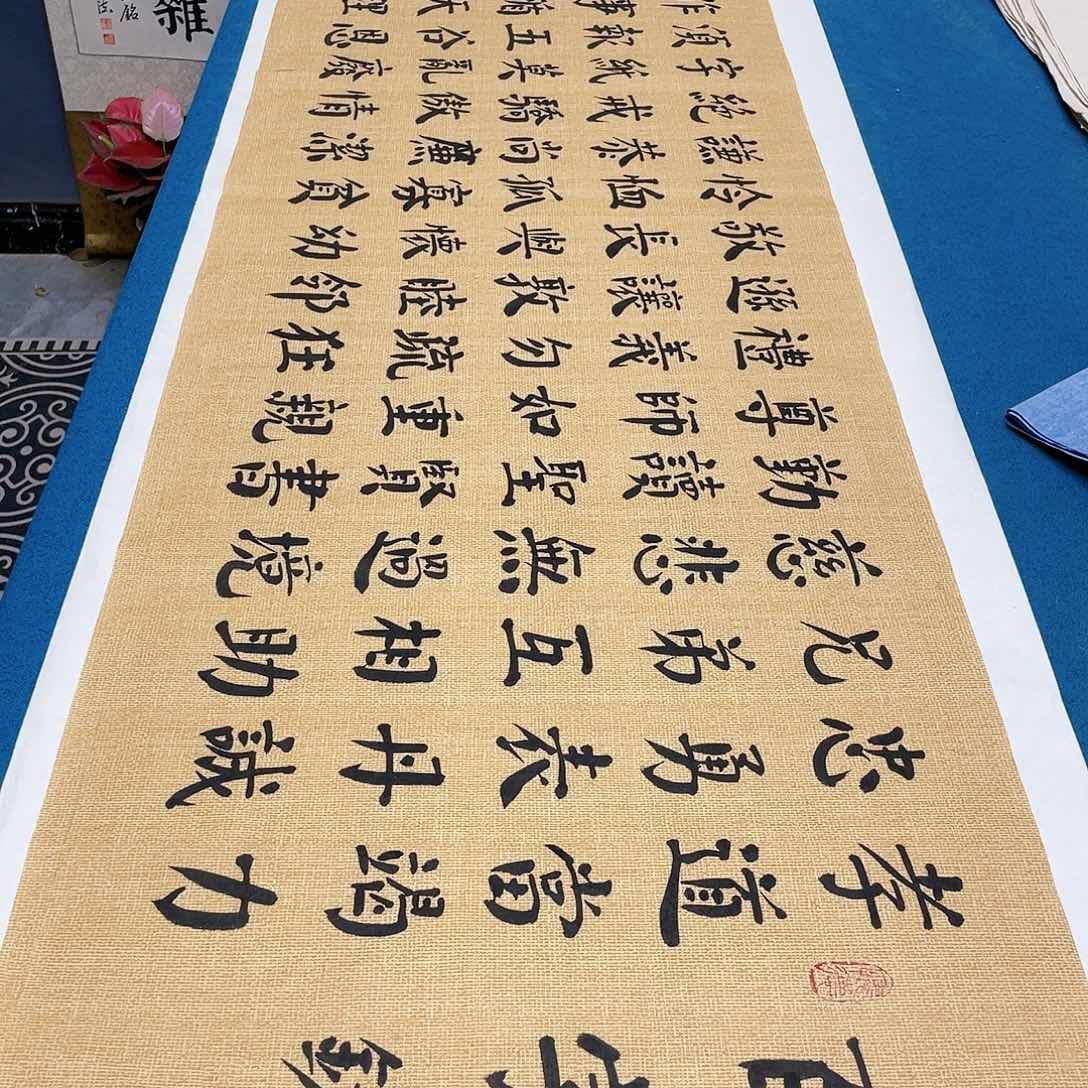 百字銘
孝道當竭力
忠勇表丹誠
兄弟互相助
慈悲無過境
勤讀聖賢書
尊師如重親
禮義勿疏狂
遜讓敦睦鄰
敬長與懷幼
憐恤孤寡貧
謙恭尚廉潔
絕戒驕傲情
字紙莫亂廢
須報五谷恩
作事循天理